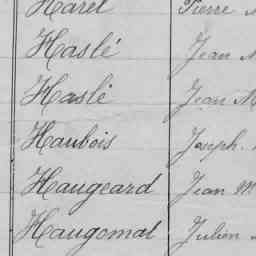 Harel Pierre
Haslé Jean
Haslé Jean M
Haubois Joseph
Haugeard Jean M
Haugomat Julien